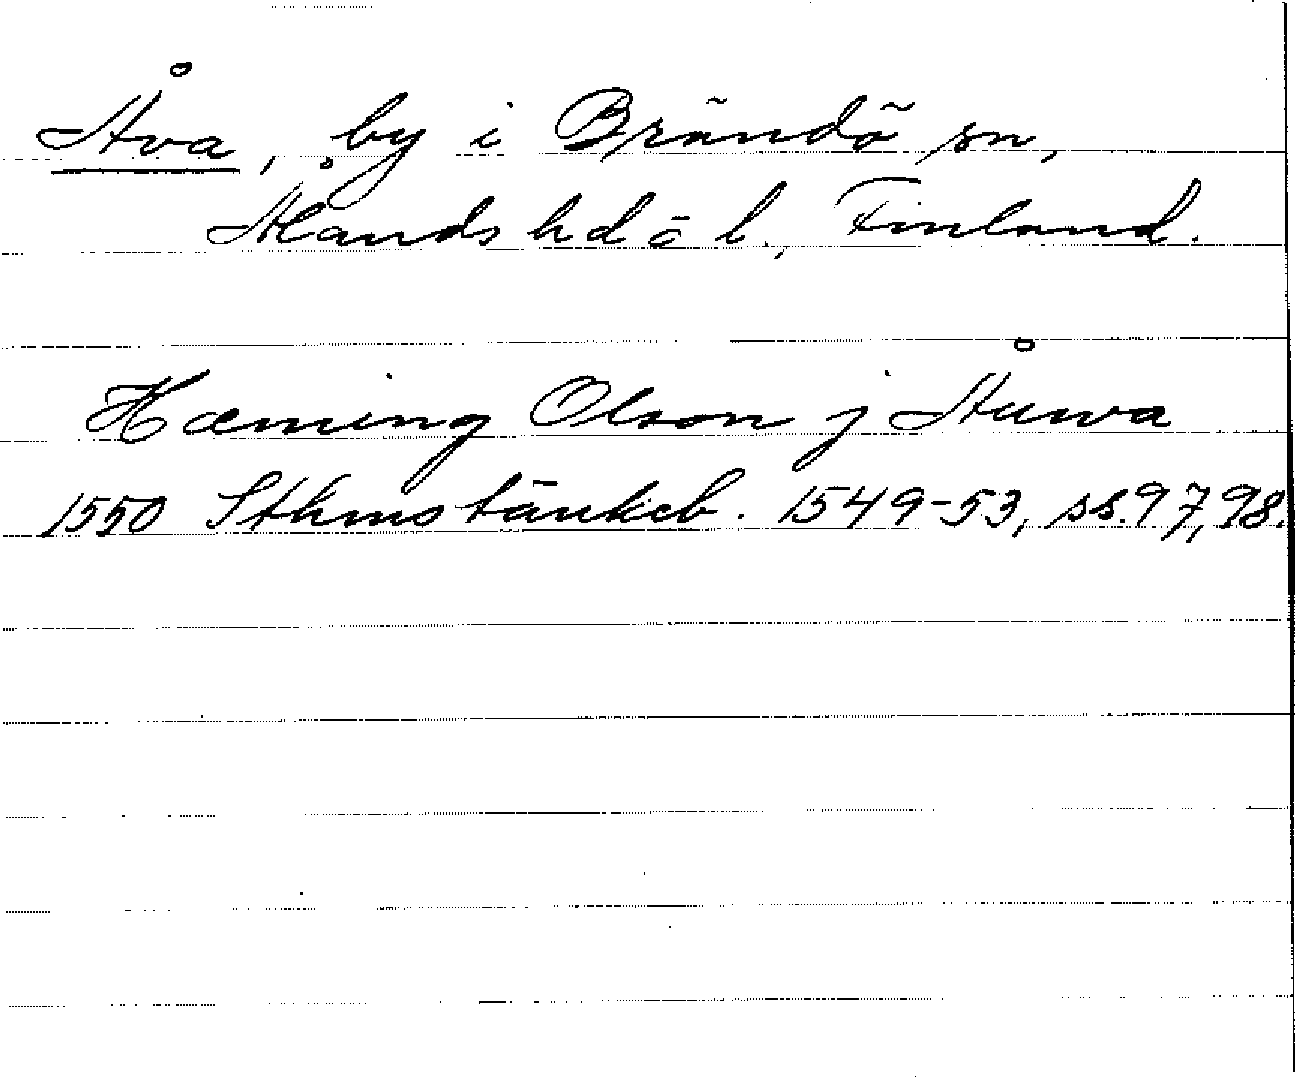 Åva, by i Brändö sn,
Ålands hd o l., Finland.
Hæming Olson j Åuwa
1550 Sthms tänkeb. 1549-53, ss. 97, 98.